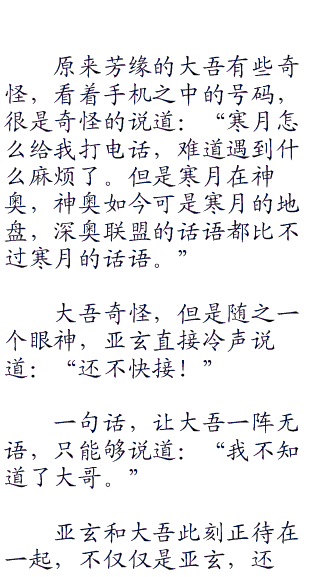 原来芳缘的大吾有些奇
怪，看着手机之中的号码，
很是奇怪的说道：“寒月怎
么给我打电话，难道遇到什
么麻烦了。但是寒月在神
奥，神奥如今可是寒月的地
盘，深奥联盟的话语都比不
过寒月的话语。”
大吾奇怪，但是随之一
个眼神，亚玄直接冷声说
道：“还不快接！”
一句话，让大吾一阵无
语，只能够说道：“我不知
道了大哥。”
亚玄和大吾此刻正待在
一起，不仅仅是亚玄，还